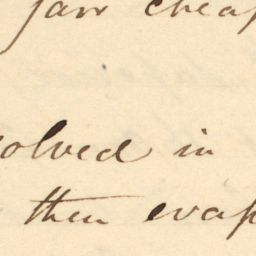 jar cheap
olved in
then evap